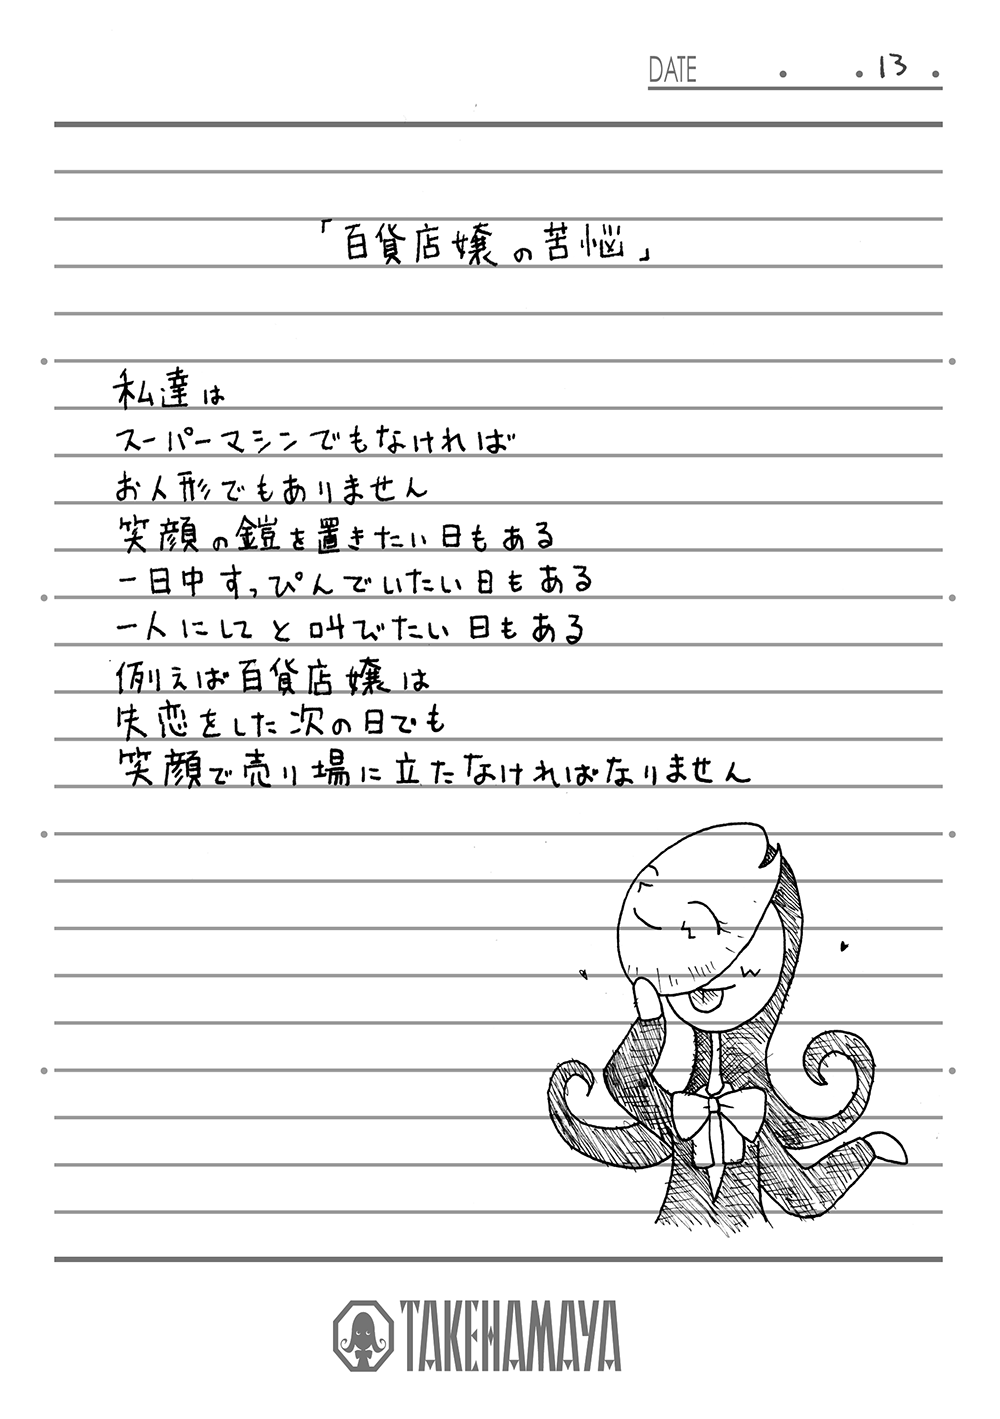 DATE . . 13 .
「百貨店嬢の苦悩」
私達は
スーパーマシンでもなければ
お人形でもありません
笑顔の鎧を置きたい日もある
一日中すっぴんでいたい日もある
一人にしてと叫びたい日もある
例えば百貨店嬢は
失恋をした次の日でも
笑顔で売り場に立たなければなりません
TAKEHAMAYA